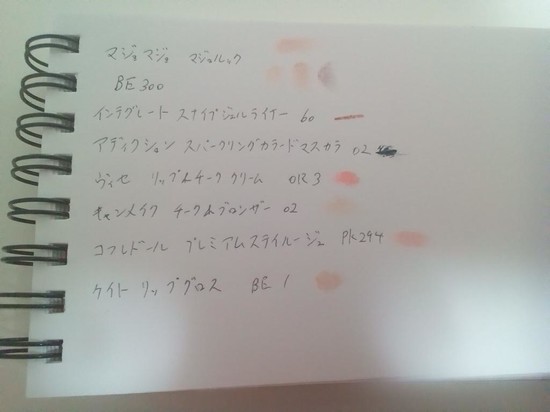 マジョマジョ マジョルック
BE300
インテグレート スナイプジェルライナー 60
アディクション スパークリングカラードマスカラ 02
ヴィセ リップ&チーククリーム OR3
キャンメイク チーク&ブロンザー 02
コフレドール プレミアムステイルージュ PK294
ケイト リップグロス BE1